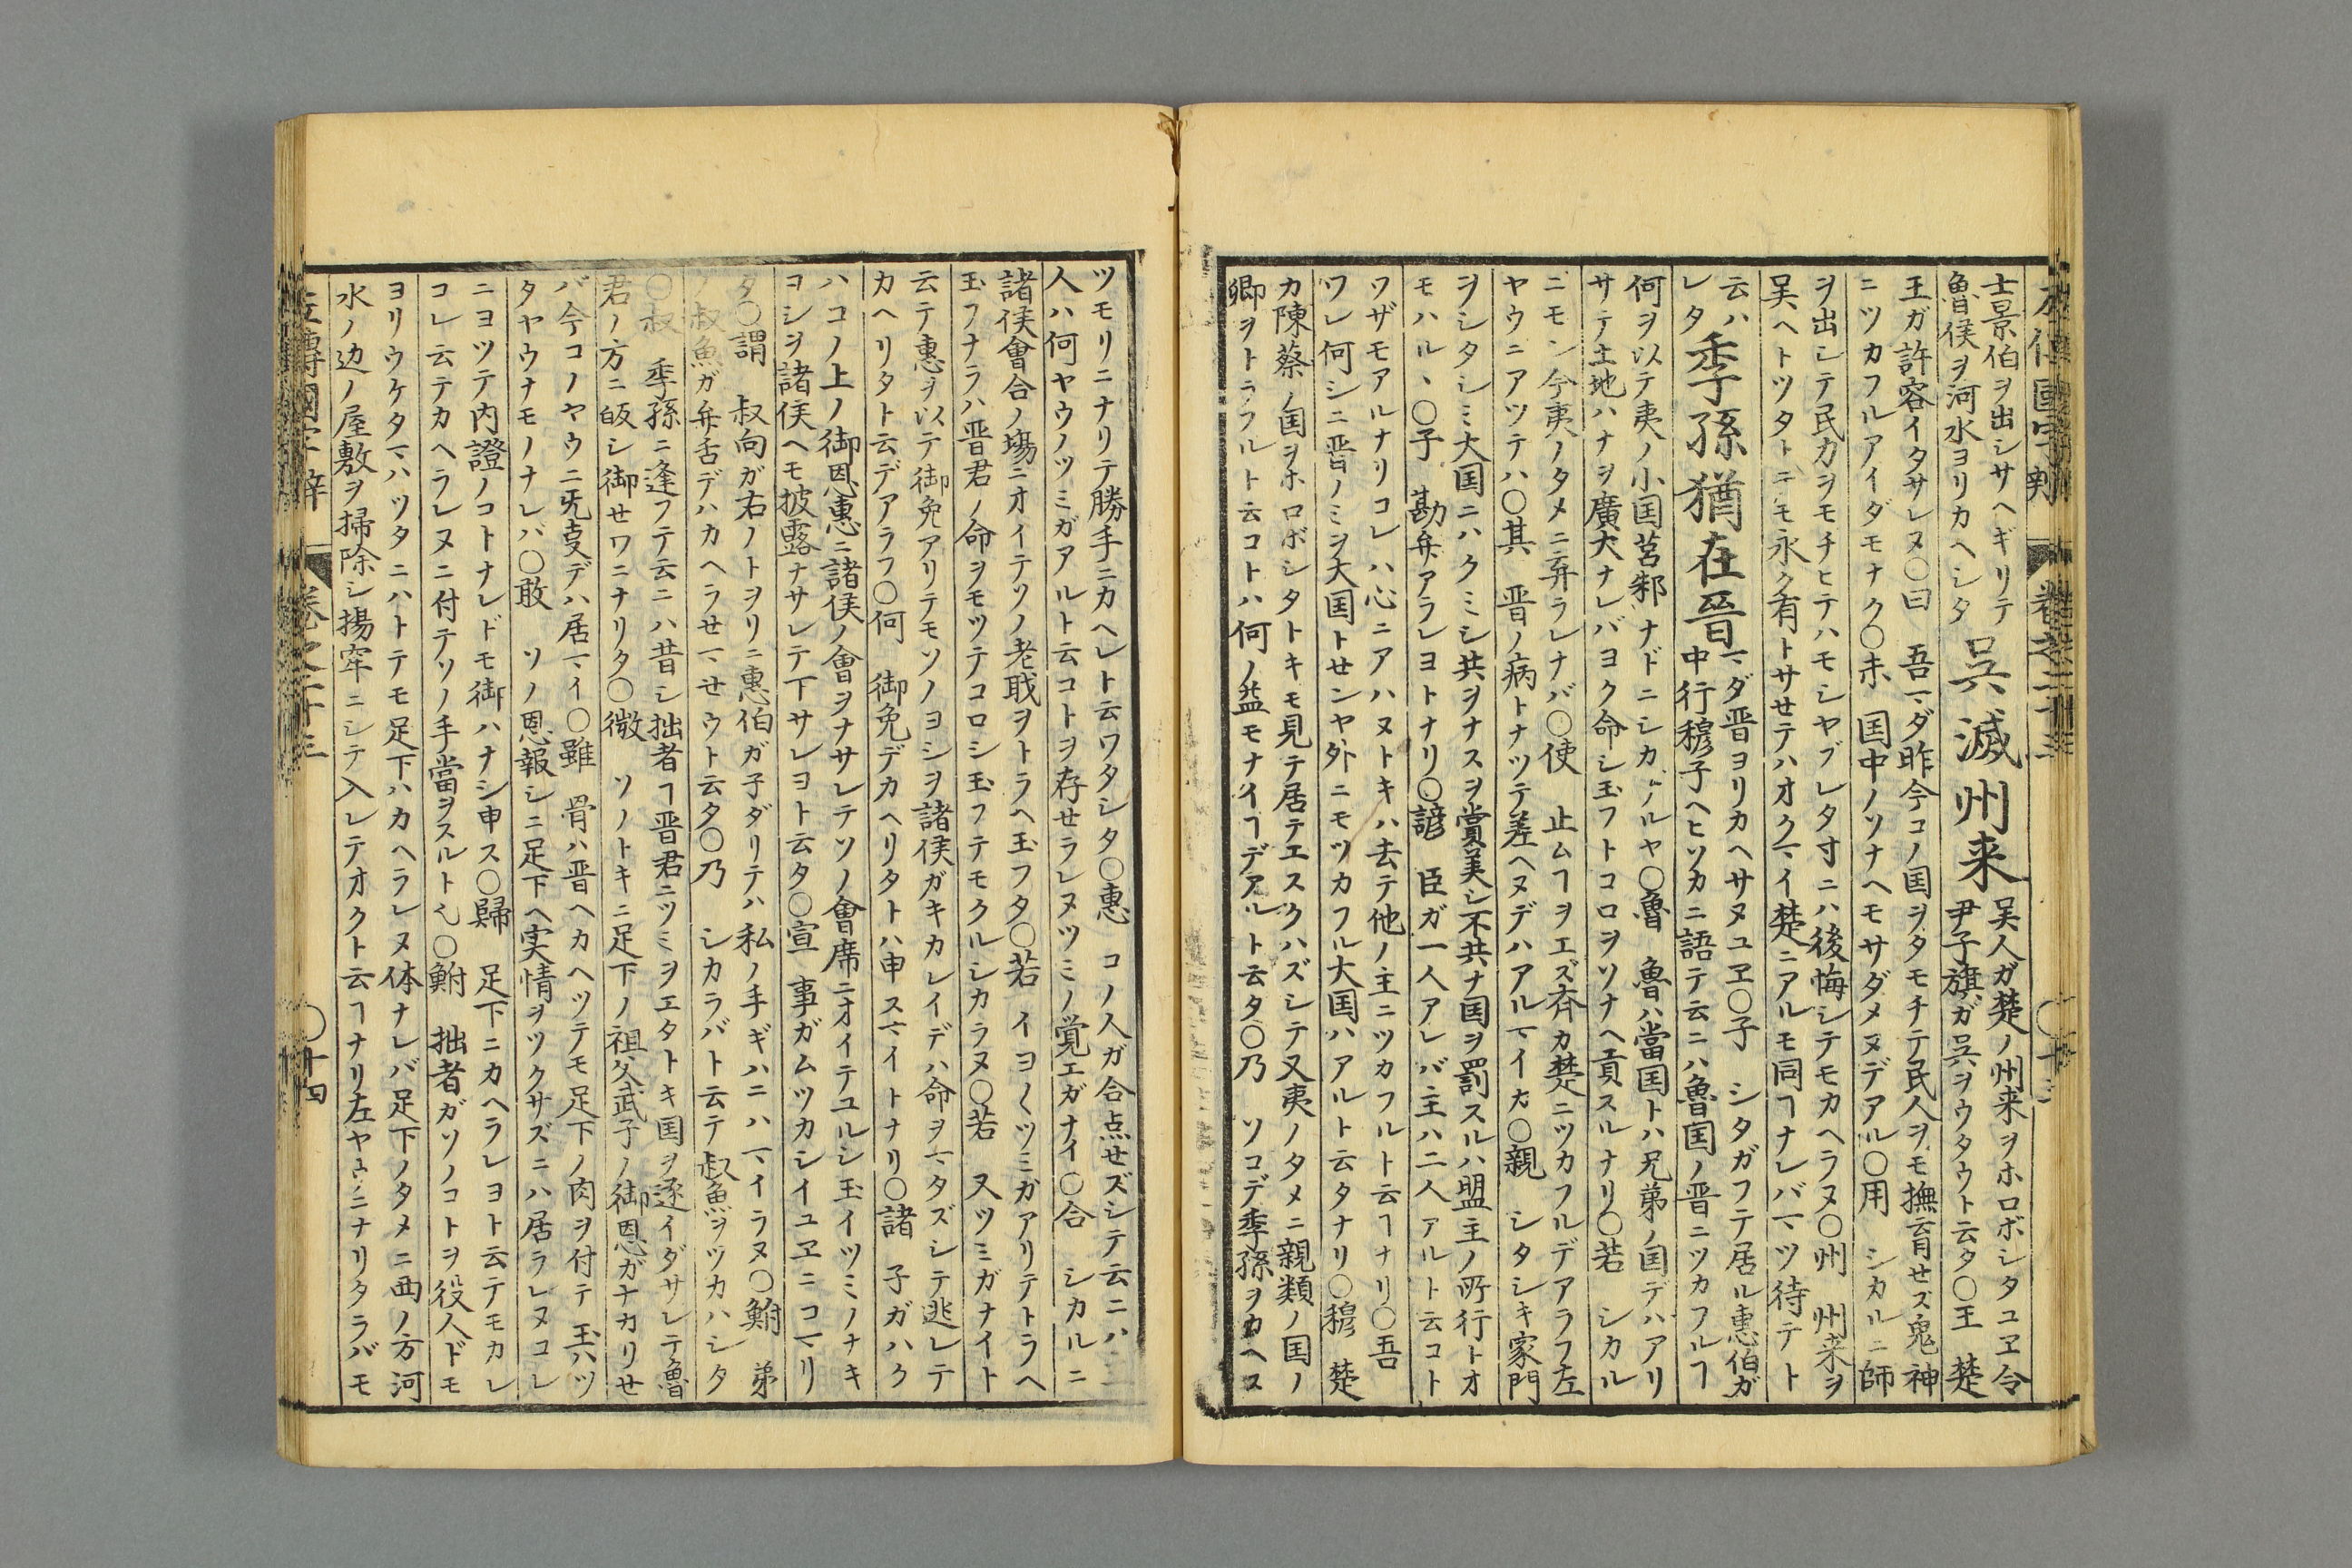 左傳國字辯 卷之二十三 〇十三
士景伯ヲ出シサヘギリテ
魯侯ヲ河水ヨリカヘシタ
呉滅州来
吴人ガ楚ノ州来ヲホロボシタユヱ令
尹子旗ガ呉ヲウタウト云タ〇王 楚
王ガ許容イタサレヌ〇曰 吾マダ昨今コノ国ヲタモチテ民人ヲモ撫育せズ鬼神
ニツカフルアイダモナク〇未 国中ノソナヘモサダメヌデアル〇用 シカルニ師
ヲ出シテ民力ヲモチヒテハモシヤブレタ寸ニハ後悔シテモカヘラヌ〇州 州来ヲ
吴ヘトツタトニモ永ク有トサせテハオクマイ楚ニアルモ同ヿナレバマツ待テト
云ハ
レタ
季孫猶在晉
マダ晋ヨリカヘサヌユヱ〇子 シタガフテ居ル惠伯ガ
中行穆子ヘヒソカニ語テ云ニハ魯国ノ晋ニツカフルヿ
何ヲ以テ夷ノ小国莒邾ナドニシカルヤ〇魯 魯ハ當国トハ兄弟ノ国デハアリ
サテ土地ハナヲ廣大ナレバヨク命シ玉フトコロヲソナヘ貢スルナリ〇若 シカル
ニモシ今夷ノタメニ弃ラレナバ〇使 止ムヿヲエズ斉カ楚ニツカフルデアラフ左
ヤウニアツテハ〇其 晋ノ病トナツテ差ヘヌデハアルマイカ〇親 シタシキ家門
ヲシタシミ大国ニハクミシ共ヲナスヲ賞美シ不共ナ国ヲ罰スルハ盟主ノ所行トオ
モハルヽ〇子 勘弁アラレヨトナリ〇諺 臣ガ一人アレバ主ハ二人アルト云コト
ワザモアルナリコレハ心ニアハヌトキハ去テ他ノ主ニツカフルト云ヿナリ〇吾
ワレ何シニ晋ノミヲ大国トせンヤ外ニモツカフル大国ハアルト云タナリ〇穆 楚
カ陳蔡ノ国ヲホロボシタトキモ見テ居テエスクハズシテ又夷ノタメニ親類ノ国ノ
卿ヲトラフルト云コトハ何ノ益モナイヿデアルト云タ〇乃 ソコデ季孫ヲカヘス
ツモリニナリテ勝手ニカヘレト云ワタシタ〇惠 コノ人ガ合点せズシテ云ニハ
人ハ何ヤウノツミガアルト云コトヲ存せラレヌツミノ覚エガナイ〇合 シカルニ
諸侯會合ノ塲ニオイテソノ老臣ヲトラヘ玉フタ〇若 イヨ〱ツミガアリテトラヘ
玉フナラハ晋君ノ命ヲモツテコロシ玉フテモクルシカラヌ〇若 又ツミガナイト
云テ惠ヲ以テ御免アリテモソノヨシヲ諸侯ガキカレイデハ命ヲマタズシテ逃レテ
カヘリタト云デアラフ〇何 御免デカヘリタトハ申スマイトナリ〇諸 子ガハク
ハコノ上ノ御恩惠ニ諸侯ノ會ヲナサレテソノ會席ニオイテユルシ玉イツミノナキ
ヨシヲ諸侯ヘモ披露ナサレテ下サレヨト云タ〇宣 事ガムツカシイユヱニコマリ
タ〇謂 叔向ガ右ノトヲリニ惠伯ガ子ダリテハ私ノ手ギハニハマイラヌ〇鮒 弟
ノ叔魚ガ弁舌デハカヘラせマせウト云タ〇乃 シカラバト云テ叔魚ヲツカハシタ
〇叔 季孫ニ逢フテ云ニハ昔シ拙者ヿ晋君ニツミヲエタトキ国ヲ逐イダサレテ魯
君ノ方ニ皈シ御せワニナリタ〇微 ソノトキニ足下ノ祖父武子ノ御恩ガナカリせ
バ今コノヤウニ旡叓デハ居マイ〇雖 骨ハ晋ヘカヘツテモ足下ノ肉ヲ付テ玉ハツ
タヤウナモノナレバ〇敢 ソノ恩報シニ足下ヘ実情ヲツクサズニハ居ラレヌコレ
ニヨツテ内證ノコトナレドモ御ハナシ申ス〇歸 足下ニカヘラレヨト云テモカレ
コレ云テカヘラレヌニ付テソノ手當ヲスルト也〇鮒 拙者ガソノコトヲ役人ドモ
ヨリウケタマハツタニハトテモ足下ハカヘラレヌ体ナレバ足下ノタメニ西ノ方河
水ノ边ノ屋敷ヲ掃除シ揚牢ニシテ入レテオクト云ヿナリ左ヤウニナリタラバモ
左傳國字辯 卷之二十三 〇十四